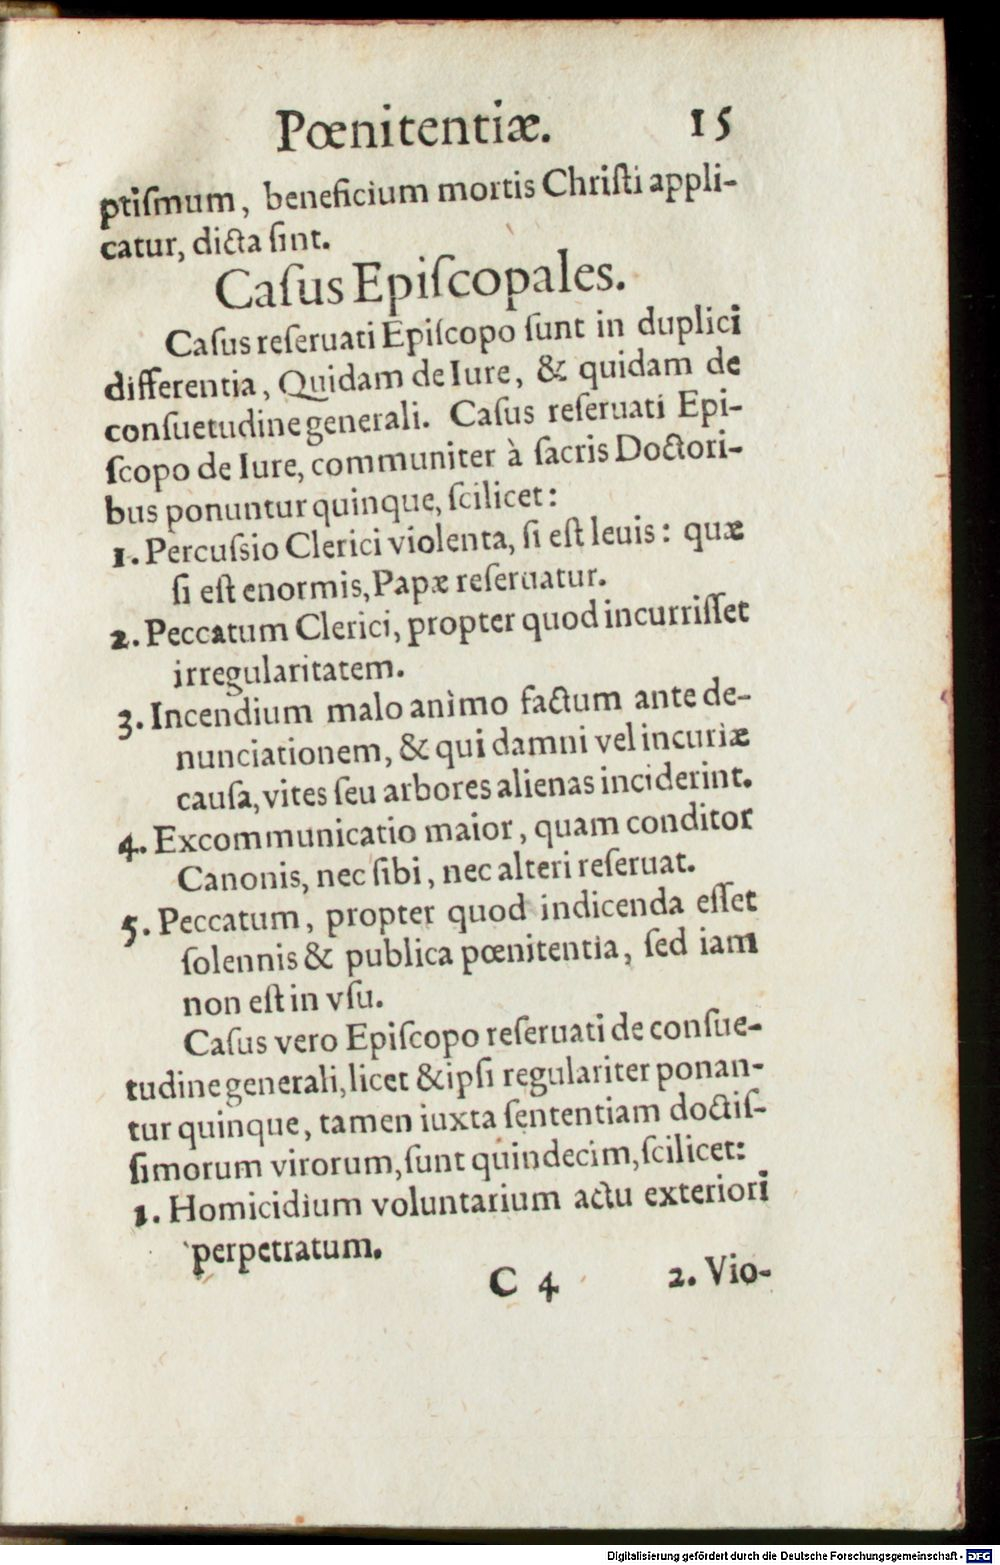 Pœnitentiæ. 15
ptiſmum, beneficium mortis Chriſti appli-
catur, dicta ſint.
Caſus Epiſcopales.
Caſus reſeruati Epiſcopo ſunt in duplici
differentia, Quidam de Iure, & quidam de
conſuetudine generali. Caſus reſeruati Epi-
ſcopo de Iure, communiter à ſacris Doctori-
bus ponuntur quinque, ſcilicet:
1. Percuſsio Clerici violenta, ſi eſt leuis: quæ
ſi eſt enormis, Papæ reſeruatur.
2. Peccatum Clerici, propter quod incurriſſet
irregularitatem.
3. Incendium malo animo factum ante de-
nunciationem, & qui damni vel incuriæ
cauſa, vites ſeu arbores alienas inciderint.
4. Excommunicatio maior, quam conditor
Canonis, nec ſibi, nec alteri reſeruat.
5. Peccatum, propter quod indicenda eſſet
ſolennis & publica pœnitentia, ſed iam
non eſt in vſu.
Caſus vero Epiſcopo reſeruati de conſue-
tudine generali, licet & ipſi regulariter ponan-
tur quinque, tamen iuxta ſententiam doctiſ-
ſimorum virorum, ſunt quindecim, ſcilicet:
1. Homicidium voluntarium actu exteriori
perpetratum.
C 4 2. Vio-
Digitalisierung gefördert durch die Deutsche Forschungsgemeinschaft - DFG